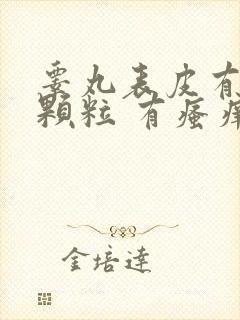 睾丸表皮有
顆粒 有瘙痒
金培達